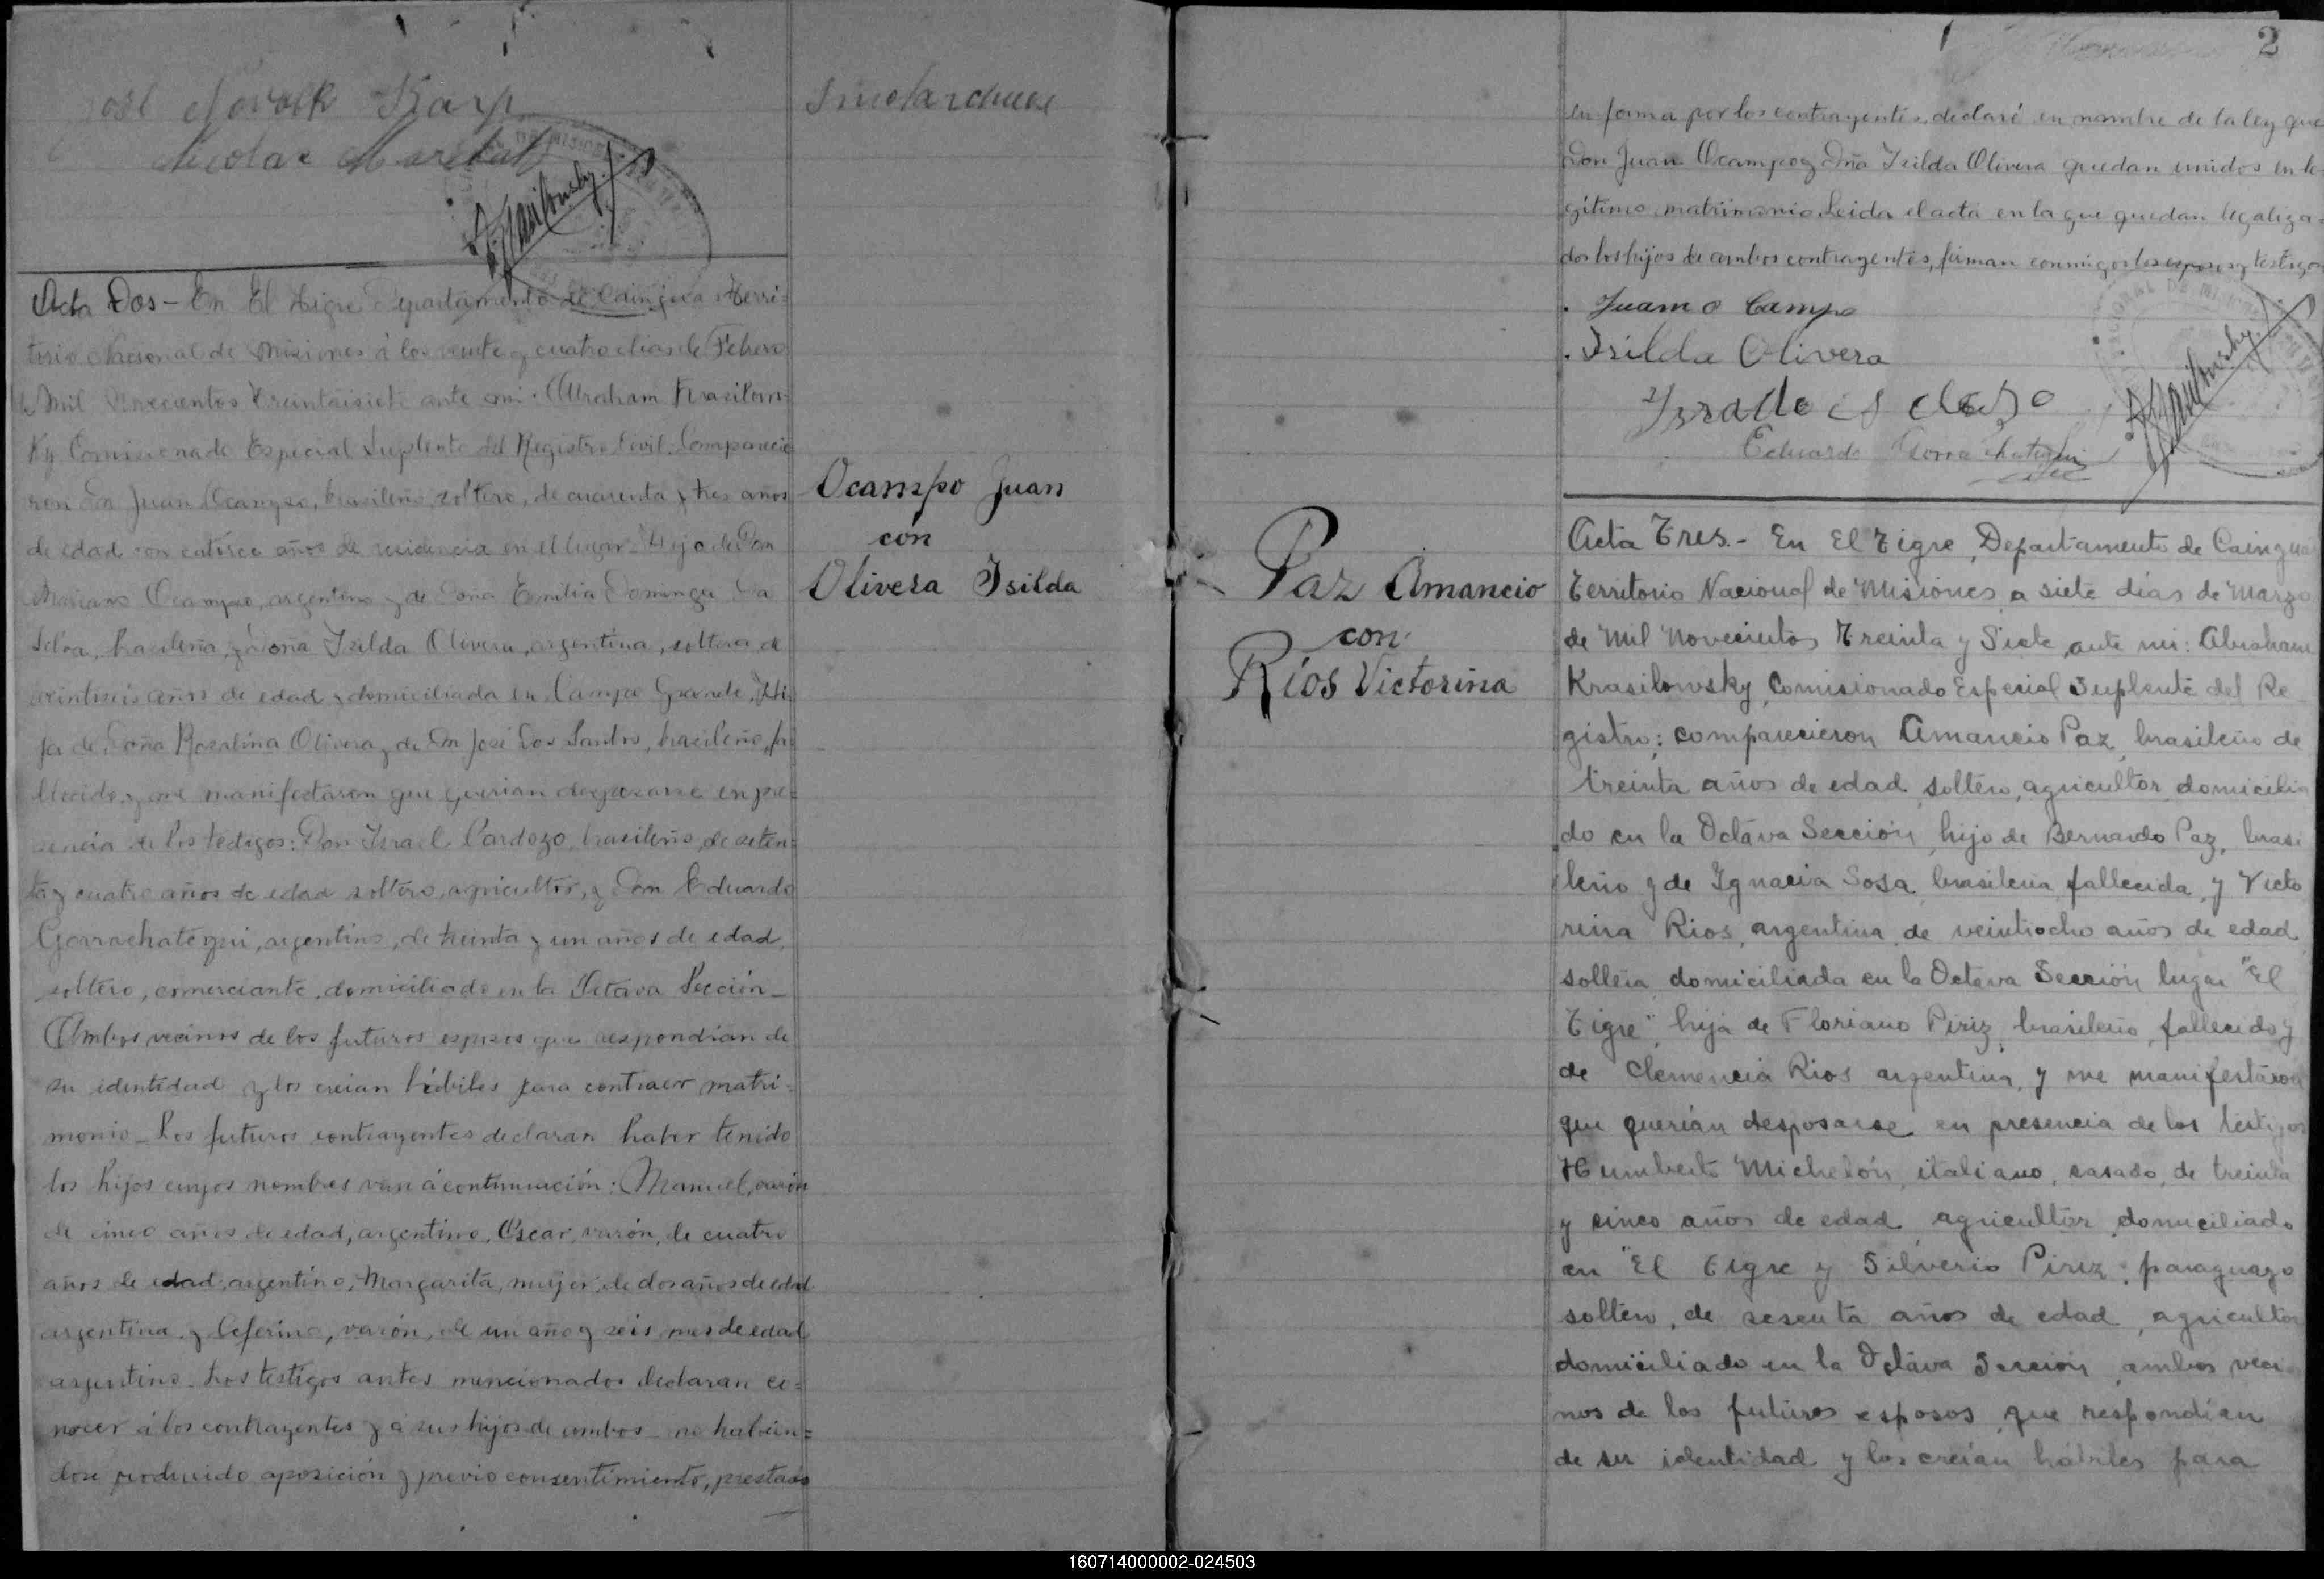 José Novack Karp
Nicolas
Acta Dos - En El Tigre Departamento de Cainguás Terri=
torio Nacional de Misiones á los veinte y cuatro dias de Febrero
de Mil Novecientos Treintaisiete ante mi: Abraham Krasilows=
ky Comisionado Especial Suplente del Registro Civil. Comparecie
ron Don Juan Ocampo, brasileño, soltero, de cuarenta y tres años
de edad con catorce años de residencia en el lugar. Hijo de Don
Mariano Ocampo, argentino y de Doña Emilia Domingu Da
Silva, brasileña, y doña Isilda Olivera, argentina, soltera de
veintiseis años de edad y domiciliada en Campo Grande. Hi
ja de Doña Rozalina Olivera y de Dn José Dos Santos, brasileño, fa
llecido, y me manifestaron que querian desposarse en pre=
sencia de los testigos: Don Israel Cardozo, brasileño, de seten=
ta y cuatro años de edad soltero, agricultor, y Don Eduardo
Gorrochategui, argentino, de treinta y un años de edad,
soltero, comerciante, domiciliado en la Octava Sección_
Ambos vecinos de los futuros esposos que respondían de
su identidad y los creian hábiles para contraer matri=
monio_ Los futuros contrayentes declaran haber tenido
los hijos cuyos nombres van á continuación: Manuel, varón
de cinco años de edad, argentino, Oscar, varón, de cuatro
años de edad, argentino, Margarita, mujer, de dos años de edad
argentina, y Ceferino, varón, de un año y seis mes de edad
argentino_ Los testigos antes mencionados declaran co=
nocer á los contrayentes y á sus hijos de ambos_ no habién=
dose producido oposición y previo consentimiento, prestado
Ocampo Juan
con
Olivera Isilda
2
en forma por los contrayentes, declaré en nombre de la ley que
Don Juan Ocampo y Dña Isilda Olivera quedan unidos en le
gítimo matrimonio. Leida el acta en la que quedan legaliza
dos los hijos de ambos contrayentes, firman conmigo los esposos y testigos
Juam o Campo
Isilda Olivera
Eduardo Gorrochategui
Paz Amancio
con
Ríos Victorina
Acta Tres.- En El Tigre, Departamento de Cainguás
Territorio Nacional de Misiones a siete días de Marzo
de Mil Novecientos Treinta y Siete, ante mi: Abraham
Krasilowsky, Comisionado Especial Suplente del Re
gistro; comparecieron Amancio Paz, brasileño de
treinta años de edad, soltero, agricultor, domicilia
do en la Octava Sección, hijo de Bernardo Paz, brasi
leño y de Ignacia Sosa, brasileña, fallecida, y Victo
rina Rios, argentina, de veintiocho años de edad
soltera, domiciliada en la Octava Sección lugar "El
Tigre", hija de Floriano Piriz, brasileño, fallecido y
de Clemencia Rios argentina, y me manifestaron
que querían desposarse en presencia de los testigos
Humberto Michelón, italiano, casado, de treinta
y cinco años de edad, agricultor, domiciliado
en "El Tigre y Silverio Piriz, paraguayo
soltero, de sesenta años de edad, agricultor
domiciliado en la Octava Sección, ambos veci
nos de los futuros esposos, que respondían
de su identidad y los creían hábiles para
160714000002-024503